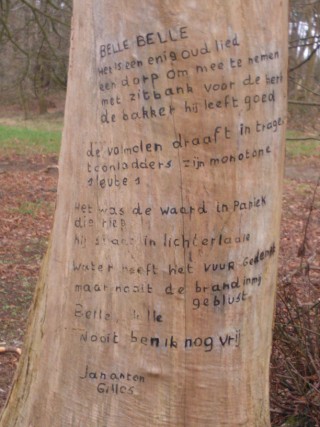 BELLE BELLE
Het is een enig oud lied
een dorp om mee te nemen
met zitbank voor de kerk
de bakker hij leeft goed
de valmolen draaft in trage
toonladders zijn monotone
sleutels
Het was de waard in Paniek
die riep
hij staat in lichterlaaie
water heeft het vuur gedempt
maar nooit de brand in mij
geblust
Belle Belle
Nooit ben ik nog vrij
Jan anton
Gilles